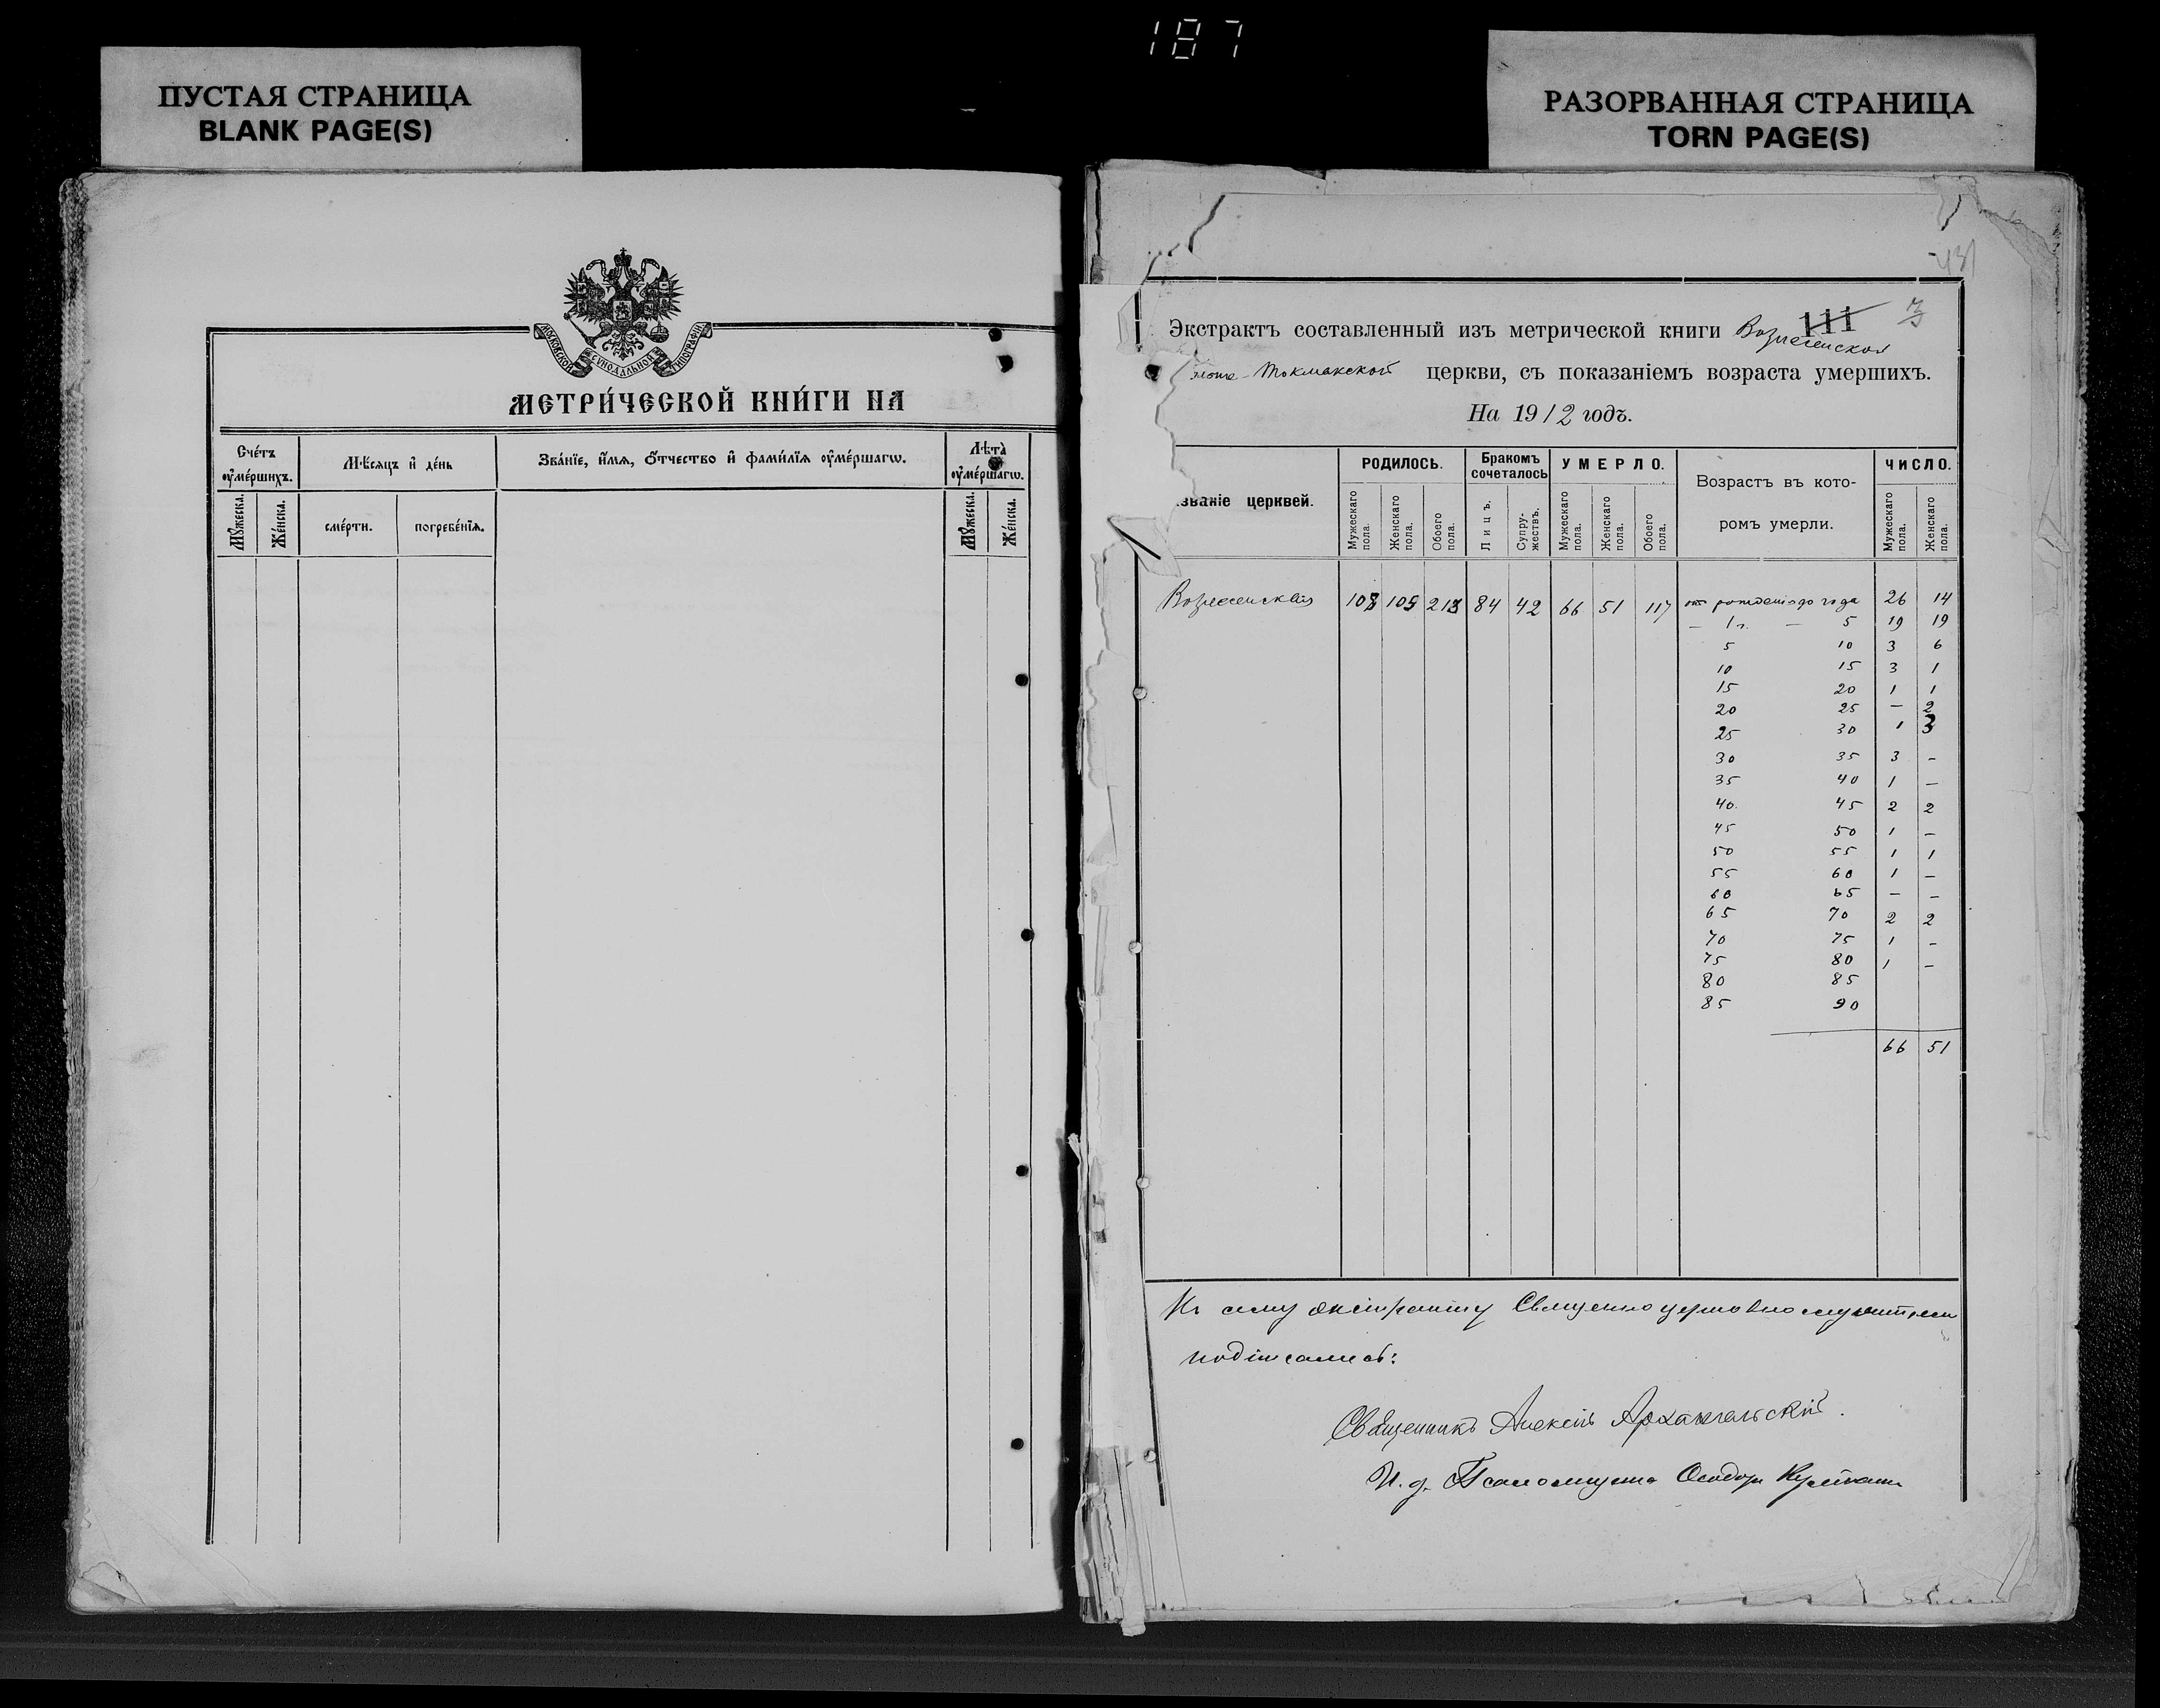 187
ПУСТАЯ СТРАНИЦА
BLANK PAGE(S)
РАЗОРВАННАЯ СТРАНИЦА
TORN PAGE(S)
МОСКОВСКОЙ СѴНОДАЛЬНОЙ ТИПОГРАФІИ
МЕТРИ́ЧЕСКОЙ КНИ́ГИ НА
Сче́тъ ᲂу҆ме́ршихъ.
Мѣсѧцъ и҆ де́нь
Зва́нїе, и҆́мѧ, ѻ҆́тчество и҆ фами́лїѧ ᲂу҆ме́ршагѡ.
Лѣта̀ ᲂу҆ме́ршагѡ.
Мꙋ́жеска.
Же́нска.
сме́рти.
погребе́нїѧ.
Мꙋ́жеска.
Же́нска.
431
111
Экстрактъ составленный изъ метрической книги Вознесенской
Токмакской церкви, съ показаніемъ возраста умершихъ.
На 1912 годъ.
званіе церквей.
РОДИЛОСЬ.
Бракомъ сочеталось
УМЕРЛО.
Возрастъ въ кото-
ромъ умерли.
ЧИСЛО.
Мужескаго пола.
Женскаго пола.
Обоего пола.
Лицъ.
Супру-жествъ.
Мужескаго пола.
Женскаго пола.
Обоего пола.
Мужескаго пола.
Женскаго пола.
Вознесенская 108 105 213 84 42 66 51 117 от рожденія до года 26 14
— 1 г. — 5 19 19
5 10 3 6
10 15 3 1
15 20 1 1
20 25 — 2
25 30 1 3
30 35 3 –
35 40 1 –
40. 45 2 2
45 50 1 –
50 55 1 1
55 60 1 –
60 65 – –
65 70 2 2
70 75 1 –
75 80 1 –
80 85
85 90
66 51
Къ сему экстракту Священноцерковнослужители
подписались:
Священникъ Алексій Архангельскій.
И. д. Псаломщика Ѳеодоръ